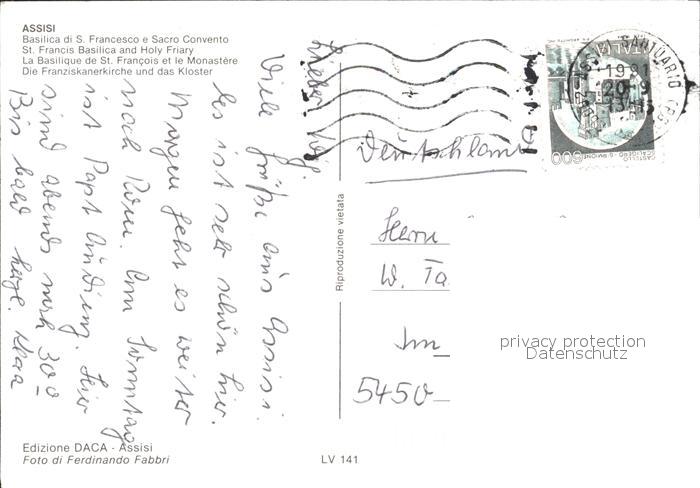 ASSISI
Basilica di S. Francesco e Sacro Convento
St. Francis Basilica and Holy Friary
La Basilique de St. François et le Monastère
Die Franziskanerkirche und das Kloster
Lieber
Viele Grüße aus Assisi.
Es ist sehr schön hier.
Morgen geht es weiter
nach Rom. Am Sonntag
ist Papst Audienz. Hier
sind abends noch 30°
Bis bald
Reproduzione vietata
ITALIA
1981
20-9
CASTELLO
SCALIGERO - SIRMIONE
600
Deutschland
Herrn
W. Ta
Im
5450
privacy protection
Datenschutz
Edizione DACA - Assisi
Foto di Ferdinando Fabbri
LV 141